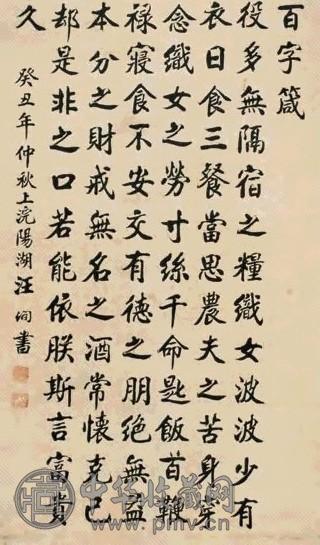 百字箴
役多無隔宿之糧織女波波少有
衣日食三餐當思農夫之苦身穿
念織女之勞寸絲千命匙飯百鞭
祿寢食不安交有德之朋絕無益
本分之財戒無名之酒常懷克己
却是非之口若能依朕斯言富貴
久
癸丑年仲秋上浣陽湖汪洵書
中华收藏网